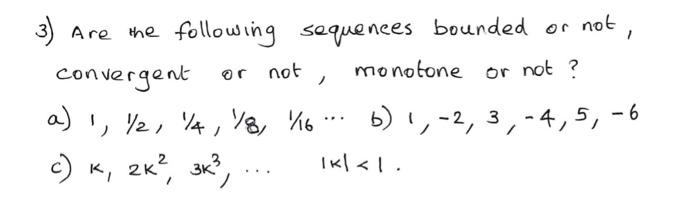 3) Are the following sequences bounded or not,
convergent or not, monotone or not?
a) 1, 1/2, 1/4, 1/8, 1/16 ... b) 1, -2, 3, -4, 5, -6
c) K, 2K², 3K³, ... |K| < 1.